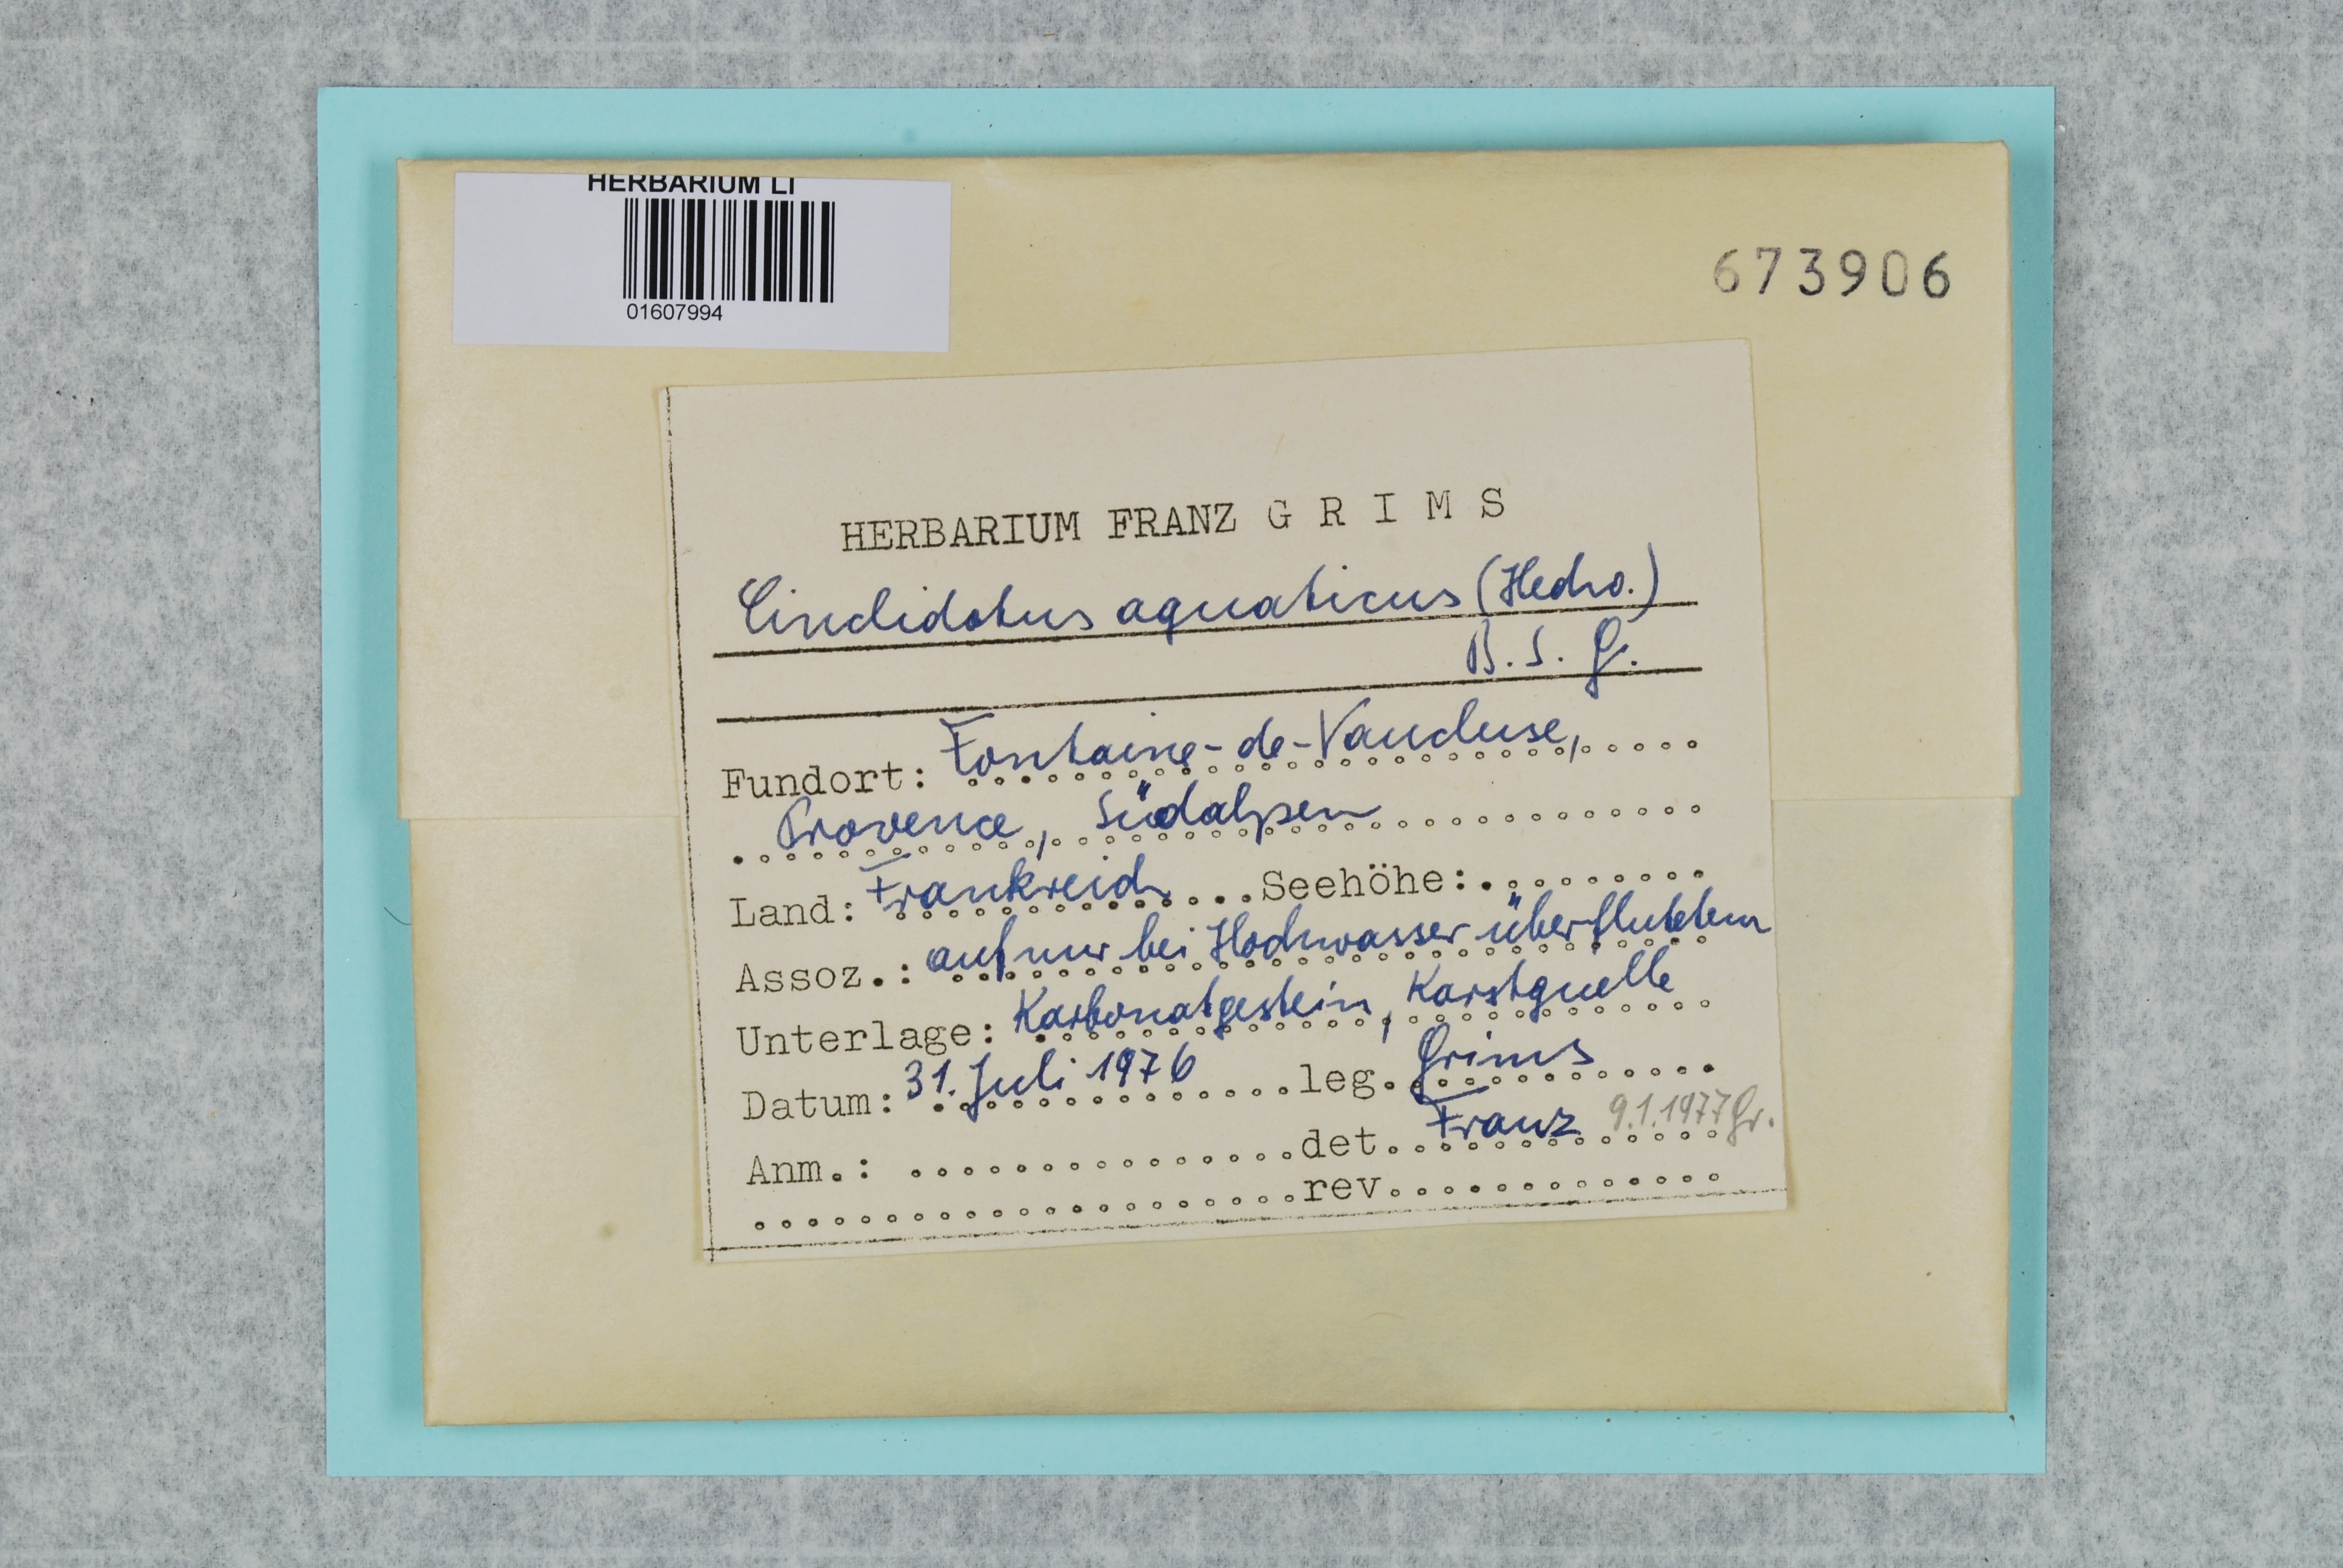 HERBARIUM LI
01607994
673906
HERBARIUM FRANZ G R I M S
Cinclidotus aquaticus (Hedw.)
B. S. G.
Fundort: Fontaine-de-Vaucluse,
Provence, Südalpen
Land: Frankreich Seehöhe:
Assoz.: auf nur bei Hochwasser überflutetem
Unterlage: Karbonatgestein, Karstquelle
Datum: 31. Juli 1976 leg. Grims
Anm.: det. Franz 9.1.1977 Gr.
rev.